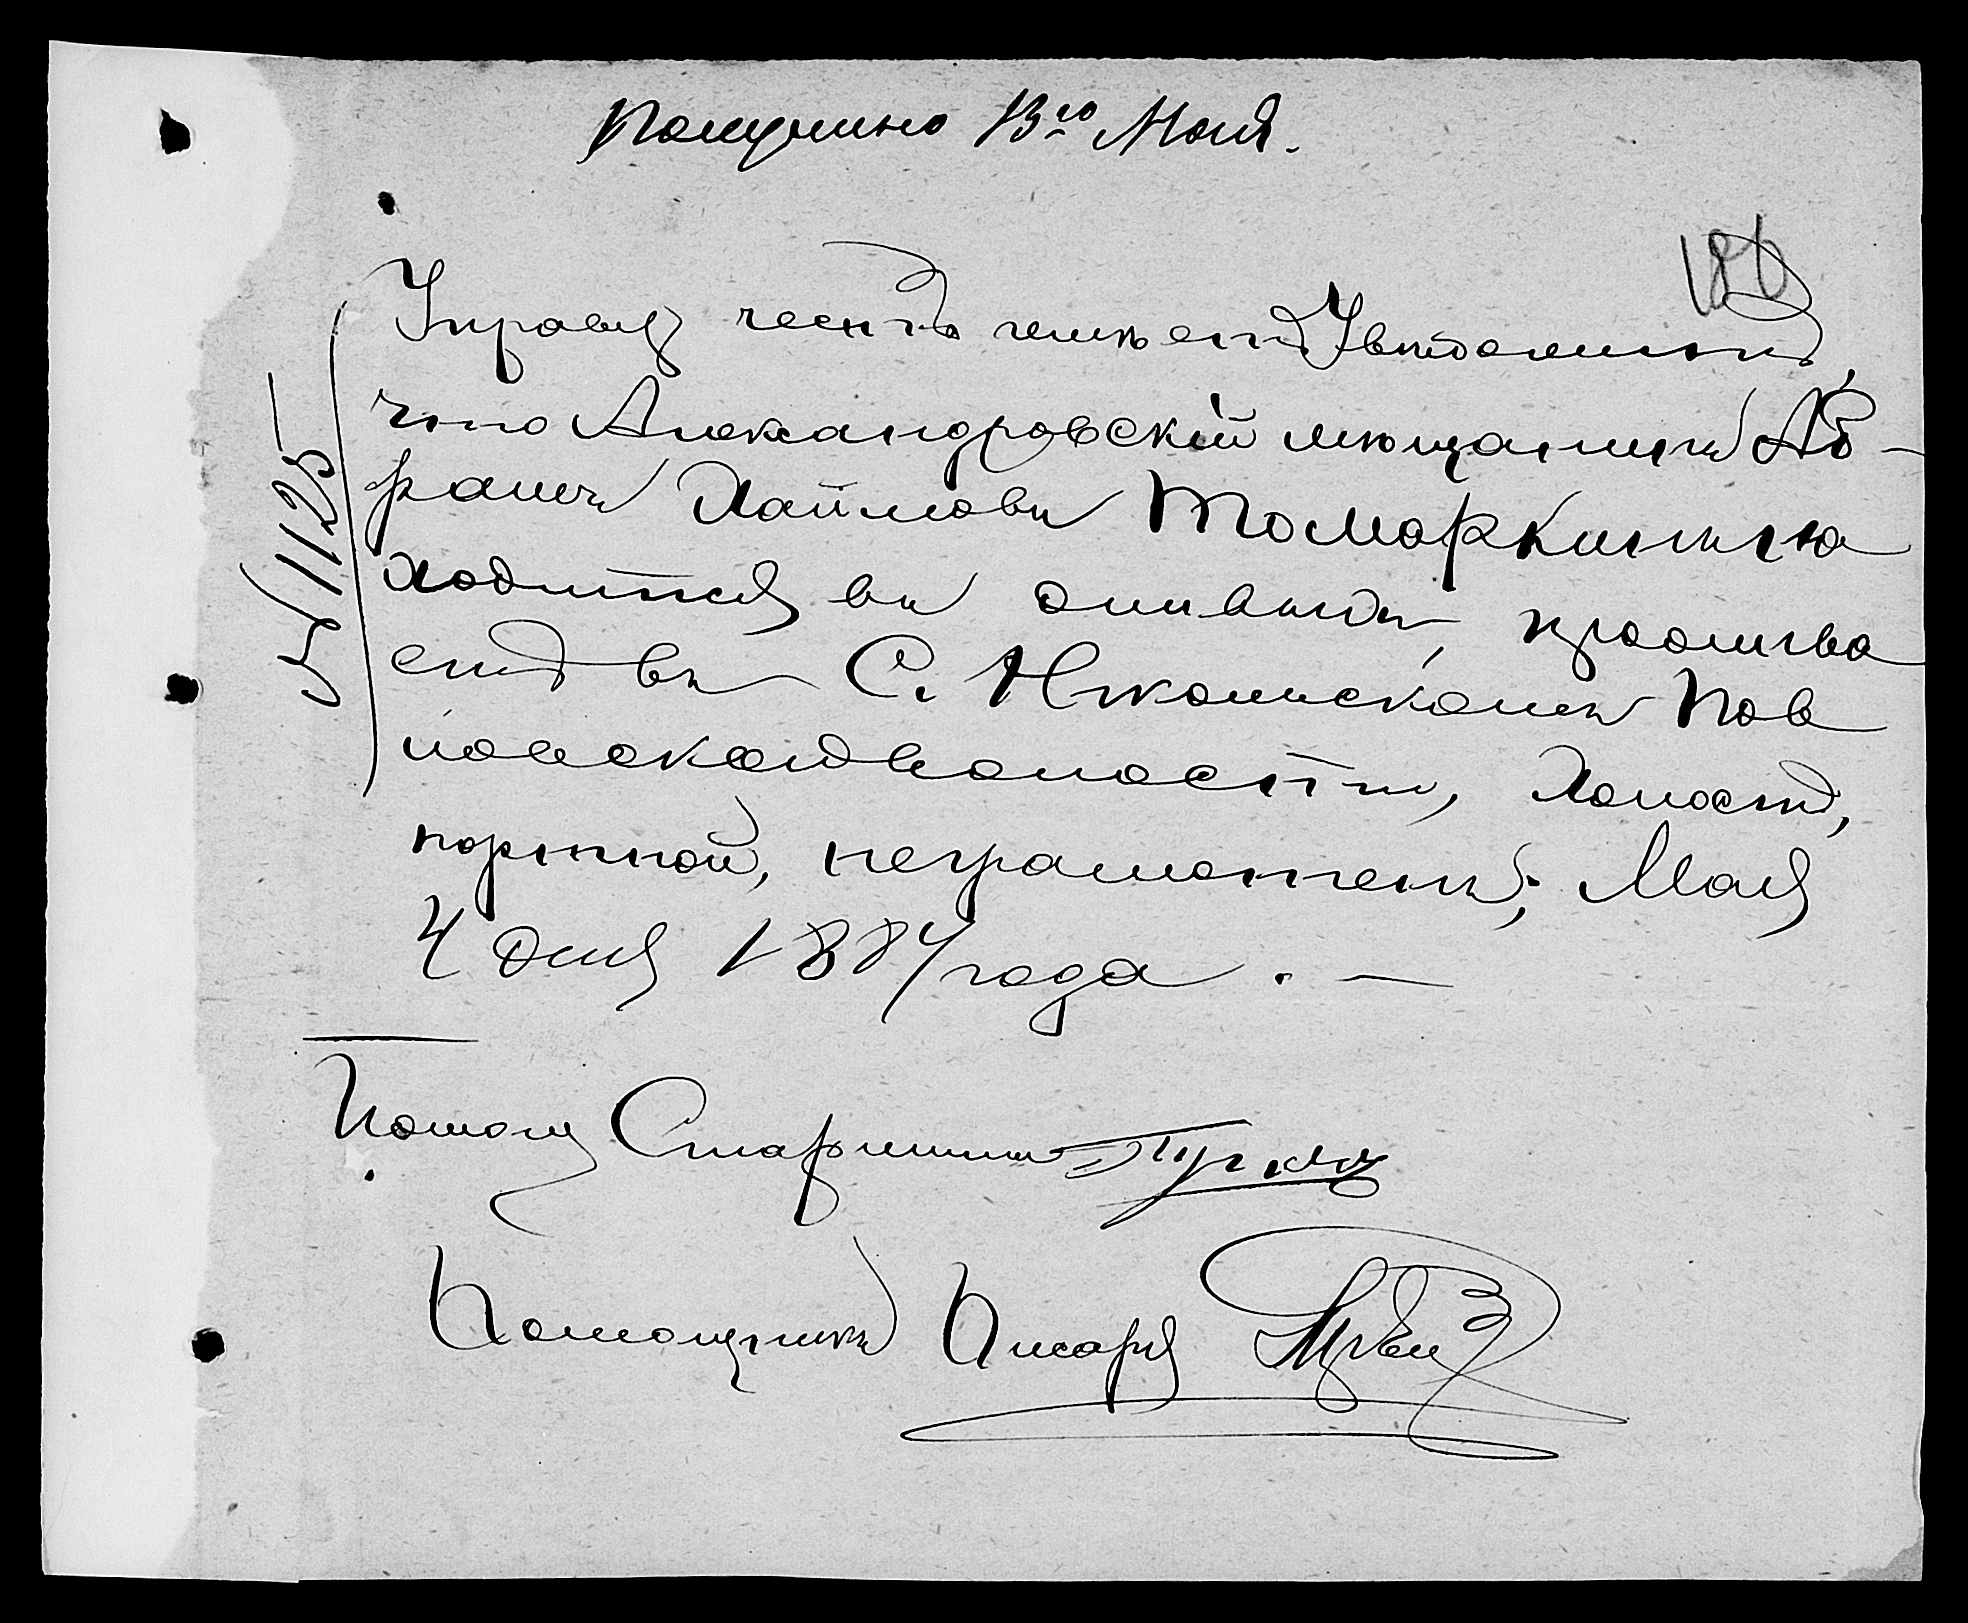 Получено 13го Мая.
186
№ 1125
Управа честь имеетъ Уведомить,
что Александровскій мещанинъ Аб-
рамъ Хаимовъ Томаркинъ на
ходится въ прожива
етъ въ С. Никольскомъ Пов
волости, Холостъ,
портной, неграмотенъ; Мая
4 дня 1884 года. —
Помощ Старшины
Помощникъ Писаря